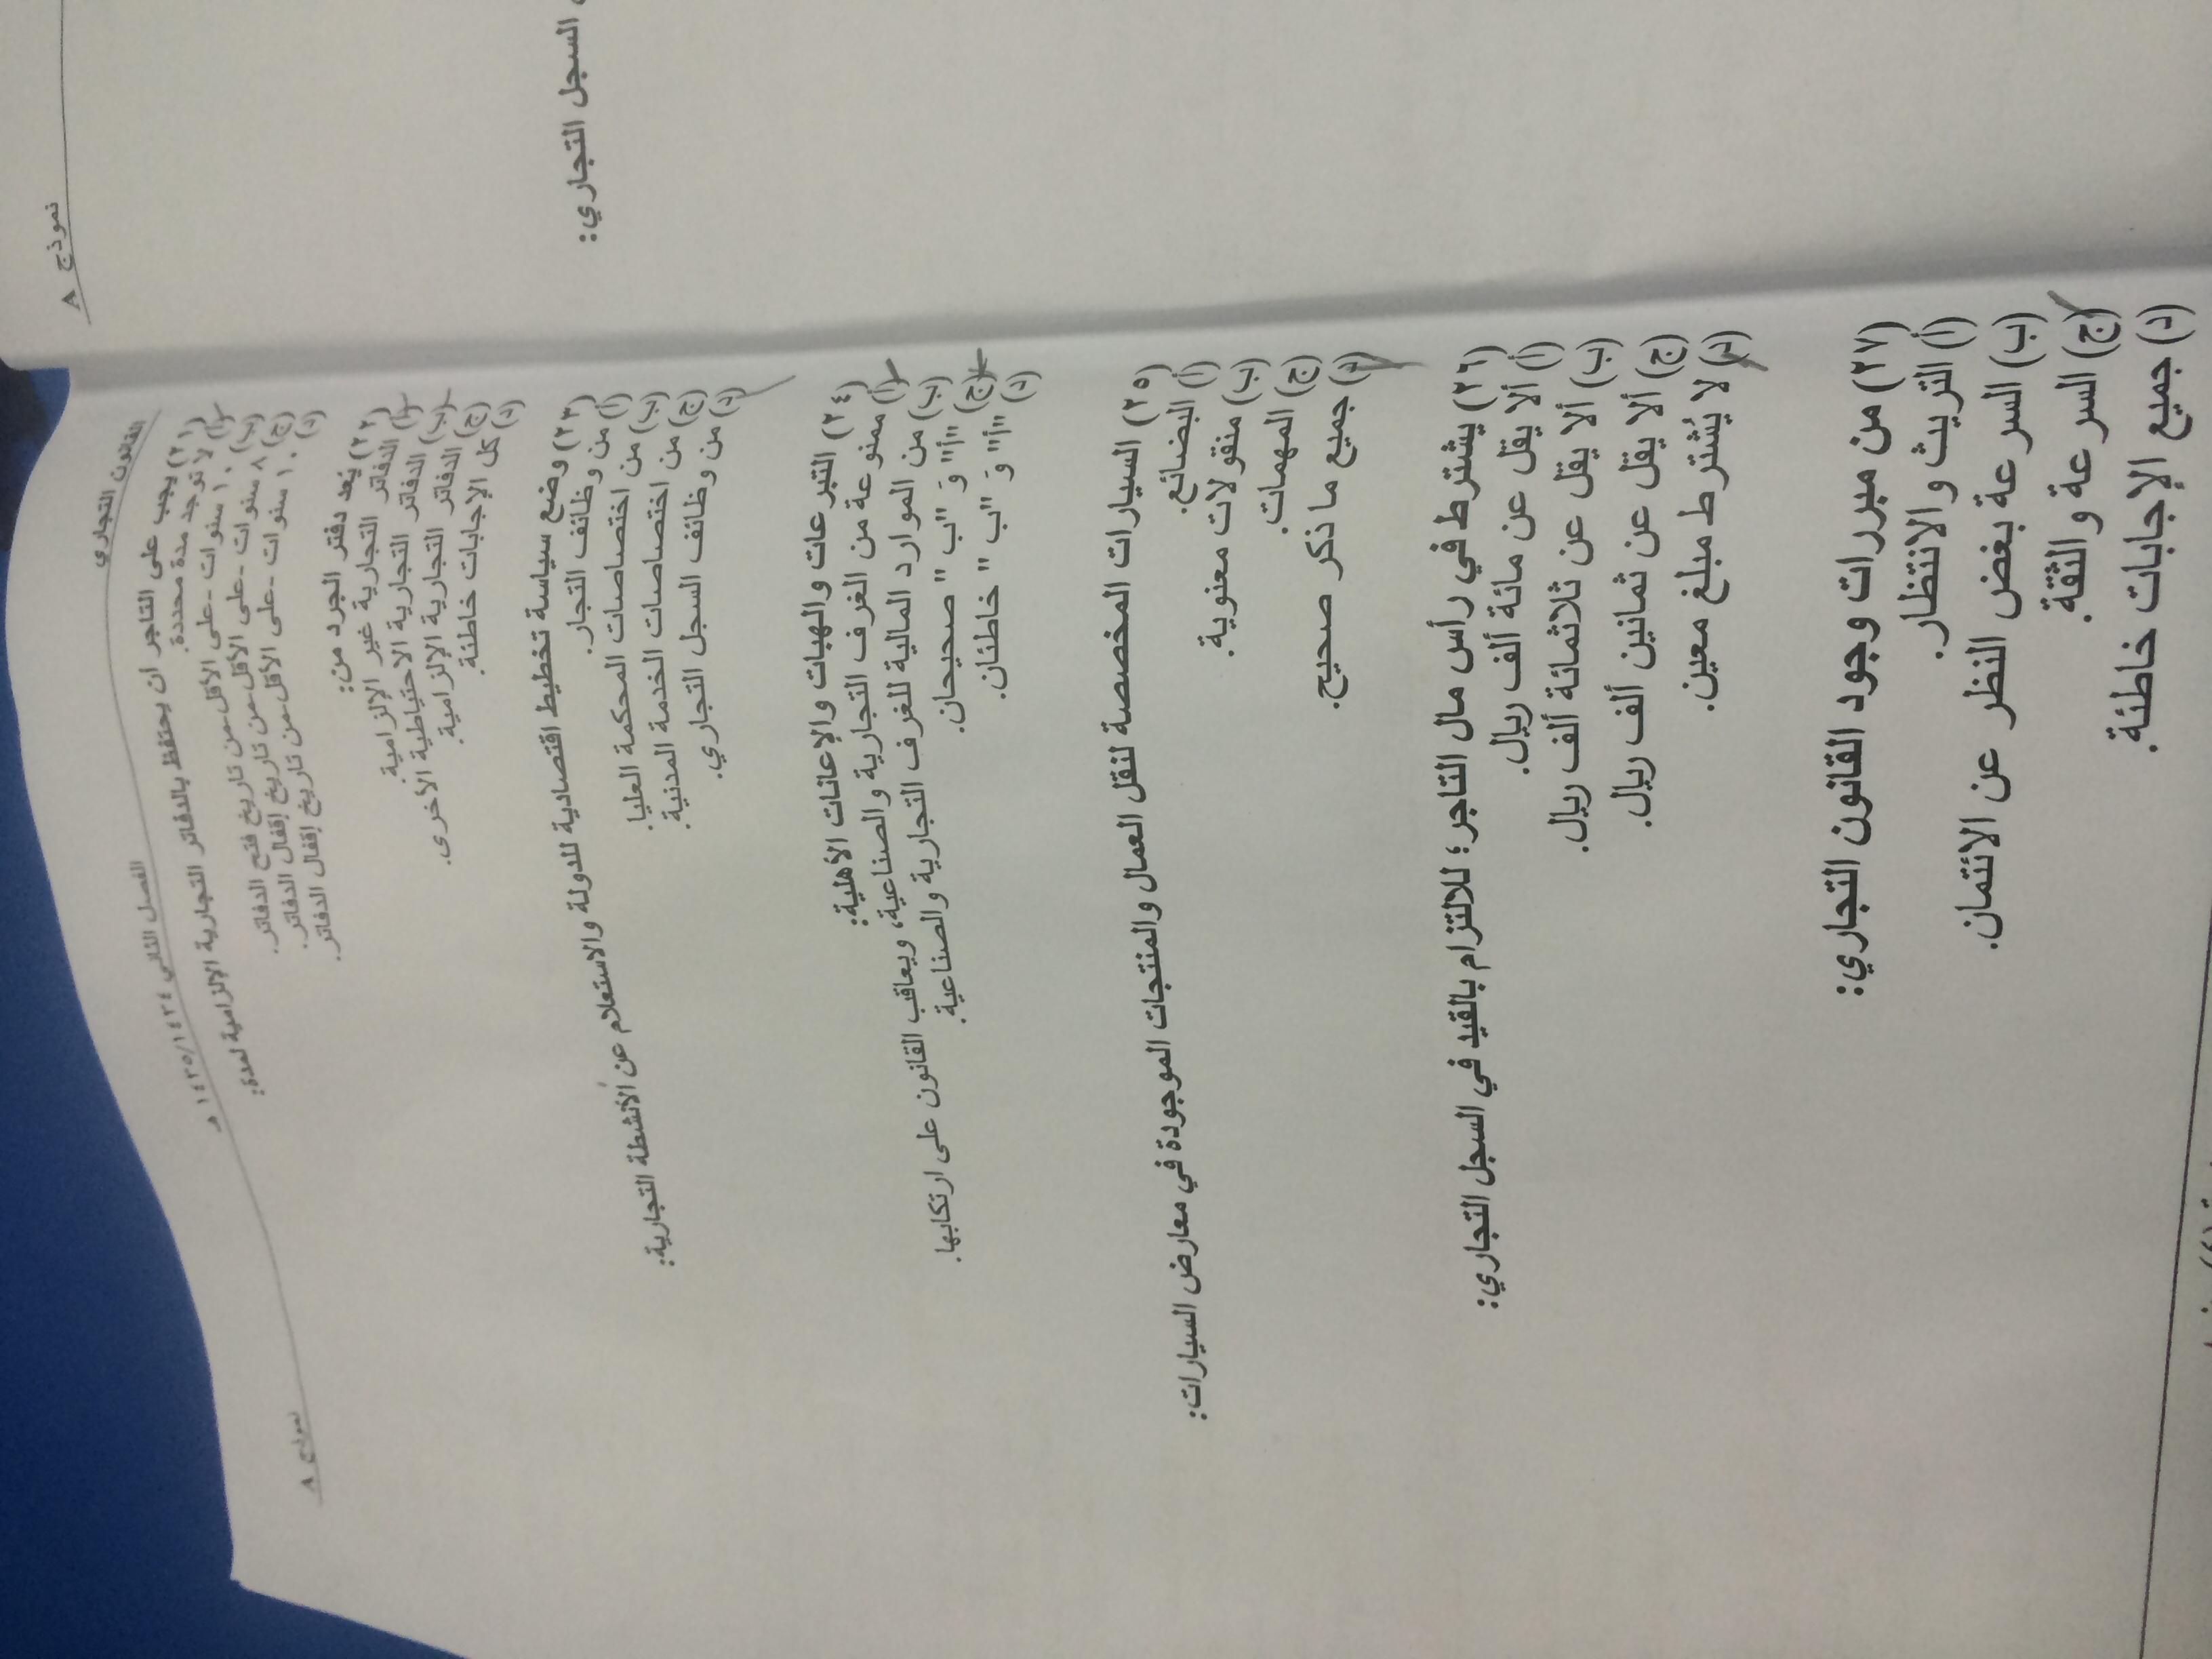 القانون التجاري
الفصل الثاني ١٤٣٤/١٤٣٥ هـ
نموذج ٨
٢١) يجب على التاجر ان يحتفظ بالدفاتر التجارية الإلزامية لمدة:
أ) لا توجد مدة محددة.
ب) ١٠ سنوات -على الأقل-من تاريخ فتح الدفاتر.
ج) ٨ سنوات -على الأقل-من تاريخ إقفال الدفاتر.
د) ١٠ سنوات -على الأقل-من تاريخ إقفال الدفاتر.
٢٢) يُعد دفتر الجرد من:
أ) الدفاتر التجارية غير الإلزامية.
ب) الدفاتر التجارية الاحتياطية الأخرى.
ج) الدفاتر التجارية الإلزامية.
د) كل الإجابات خاطئة.
٢٣) وضع سياسة تخطيط اقتصادية للدولة والاستعلام عن الأنشطة التجارية:
أ) من وظائف التجار.
ب) من اختصاصات المحكمة العليا.
ج) من اختصاصات الخدمة المدنية.
د) من وظائف السجل التجاري.
٢٤) التبرعات والهبات والإعانات الأهلية:
أ) ممنوعة من الغرف التجارية والصناعية، ويعاقب القانون على ارتكابها.
ب) من الموارد المالية للغرف التجارية والصناعية.
ج) "أ" وَ "ب" صحيحان.
د) "أ" وَ "ب" خاطئان.
٢٥) السيارات المخصصة لنقل العمال والمنتجات الموجودة في معارض السيارات:
أ) البضائع.
ب) منقولات معنوية.
ج) المهمات.
د) جميع ما ذكر صحيح.
٢٦) يشترط في رأس مال التاجر؛ للالتزام بالقيد في السجل التجاري:
أ) ألا يقل عن مائة ألف ريال.
ب) ألا يقل عن ثلاثمائة ألف ريال.
ج) ألا يقل عن ثمانين ألف ريال.
د) لا يُشترط مبلغ معين.
٢٧) من مبررات وجود القانون التجاري:
أ) التريث والانتظار.
ب) السرعة بغض النظر عن الائتمان.
ج) السرعة والثقة.
د) جميع الإجابات خاطئة.
نموذج ٨
السجل التجاري: